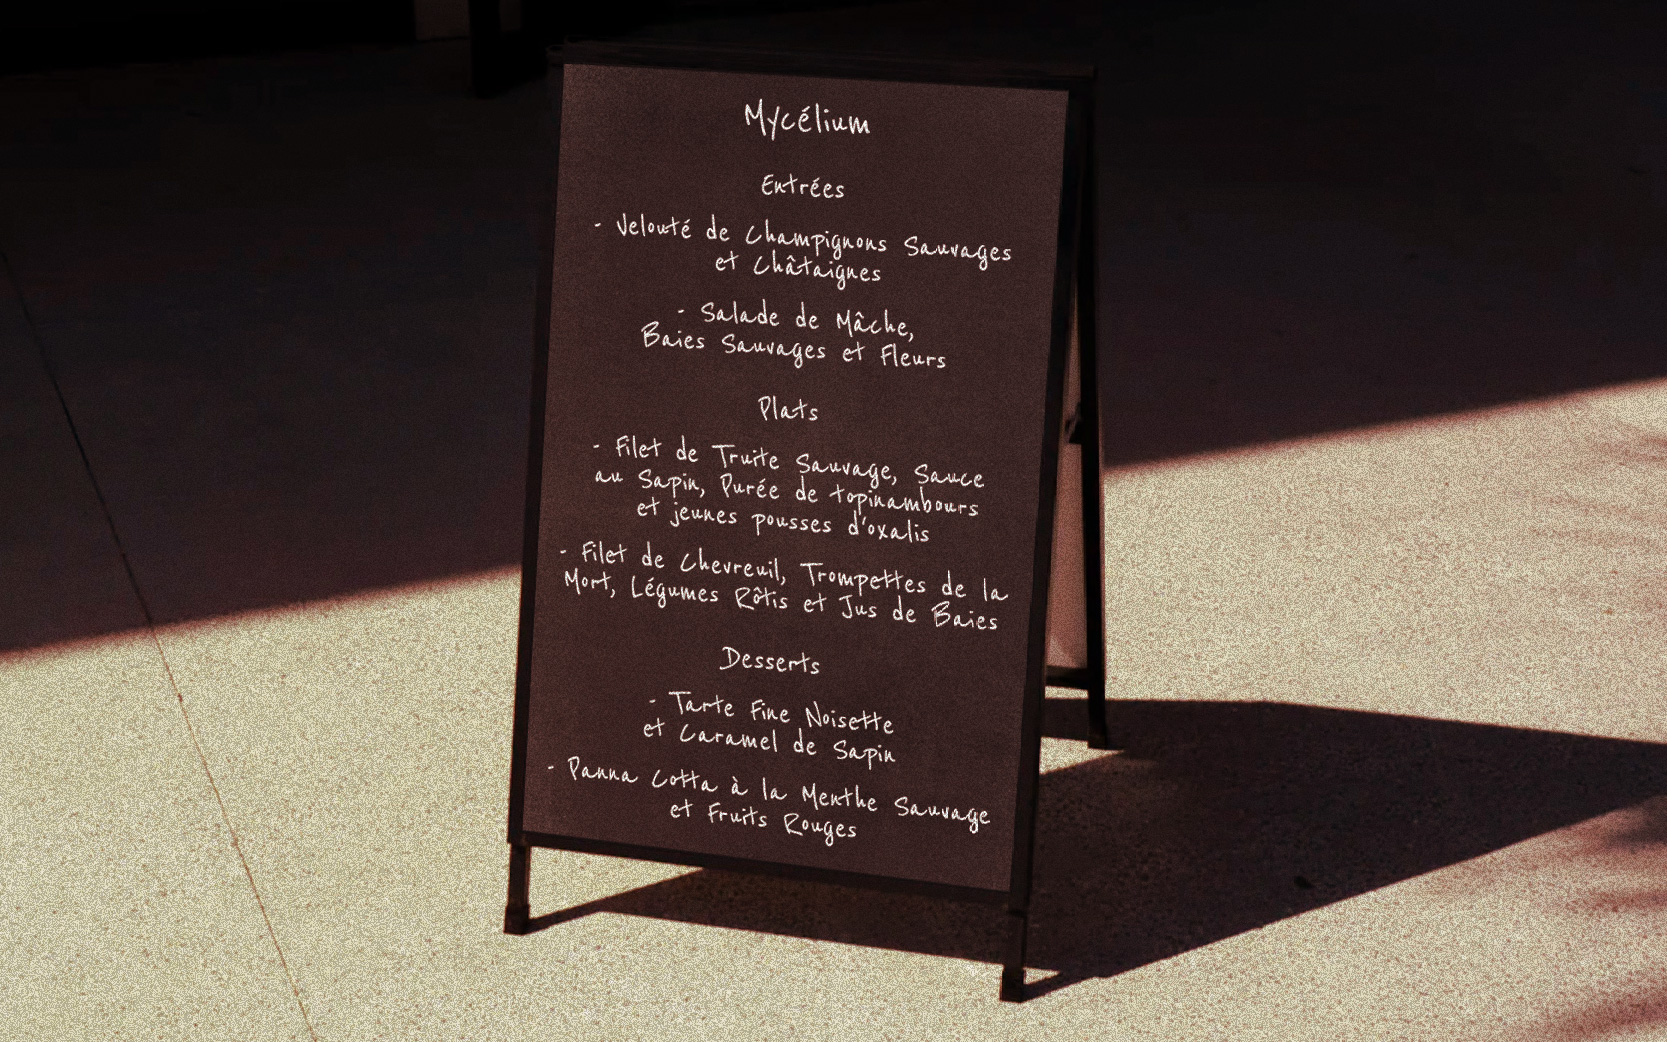 Mycélium
Entrées
- Velouté de Champignons Sauvages
et Châtaignes
- Salade de Mâche,
Baies Sauvages et Fleurs
Plats
- Filet de Truite Sauvage, Sauce
au Sapin, Purée de topinambours
et jeunes pousses d'oxalis
- Filet de Chevreuil, Trompettes de la
Mort, Légumes Rôtis et Jus de Baies
Desserts
- Tarte Fine Noisette
et Caramel de Sapin
- Panna Cotta à la Menthe Sauvage
et Fruits Rouges